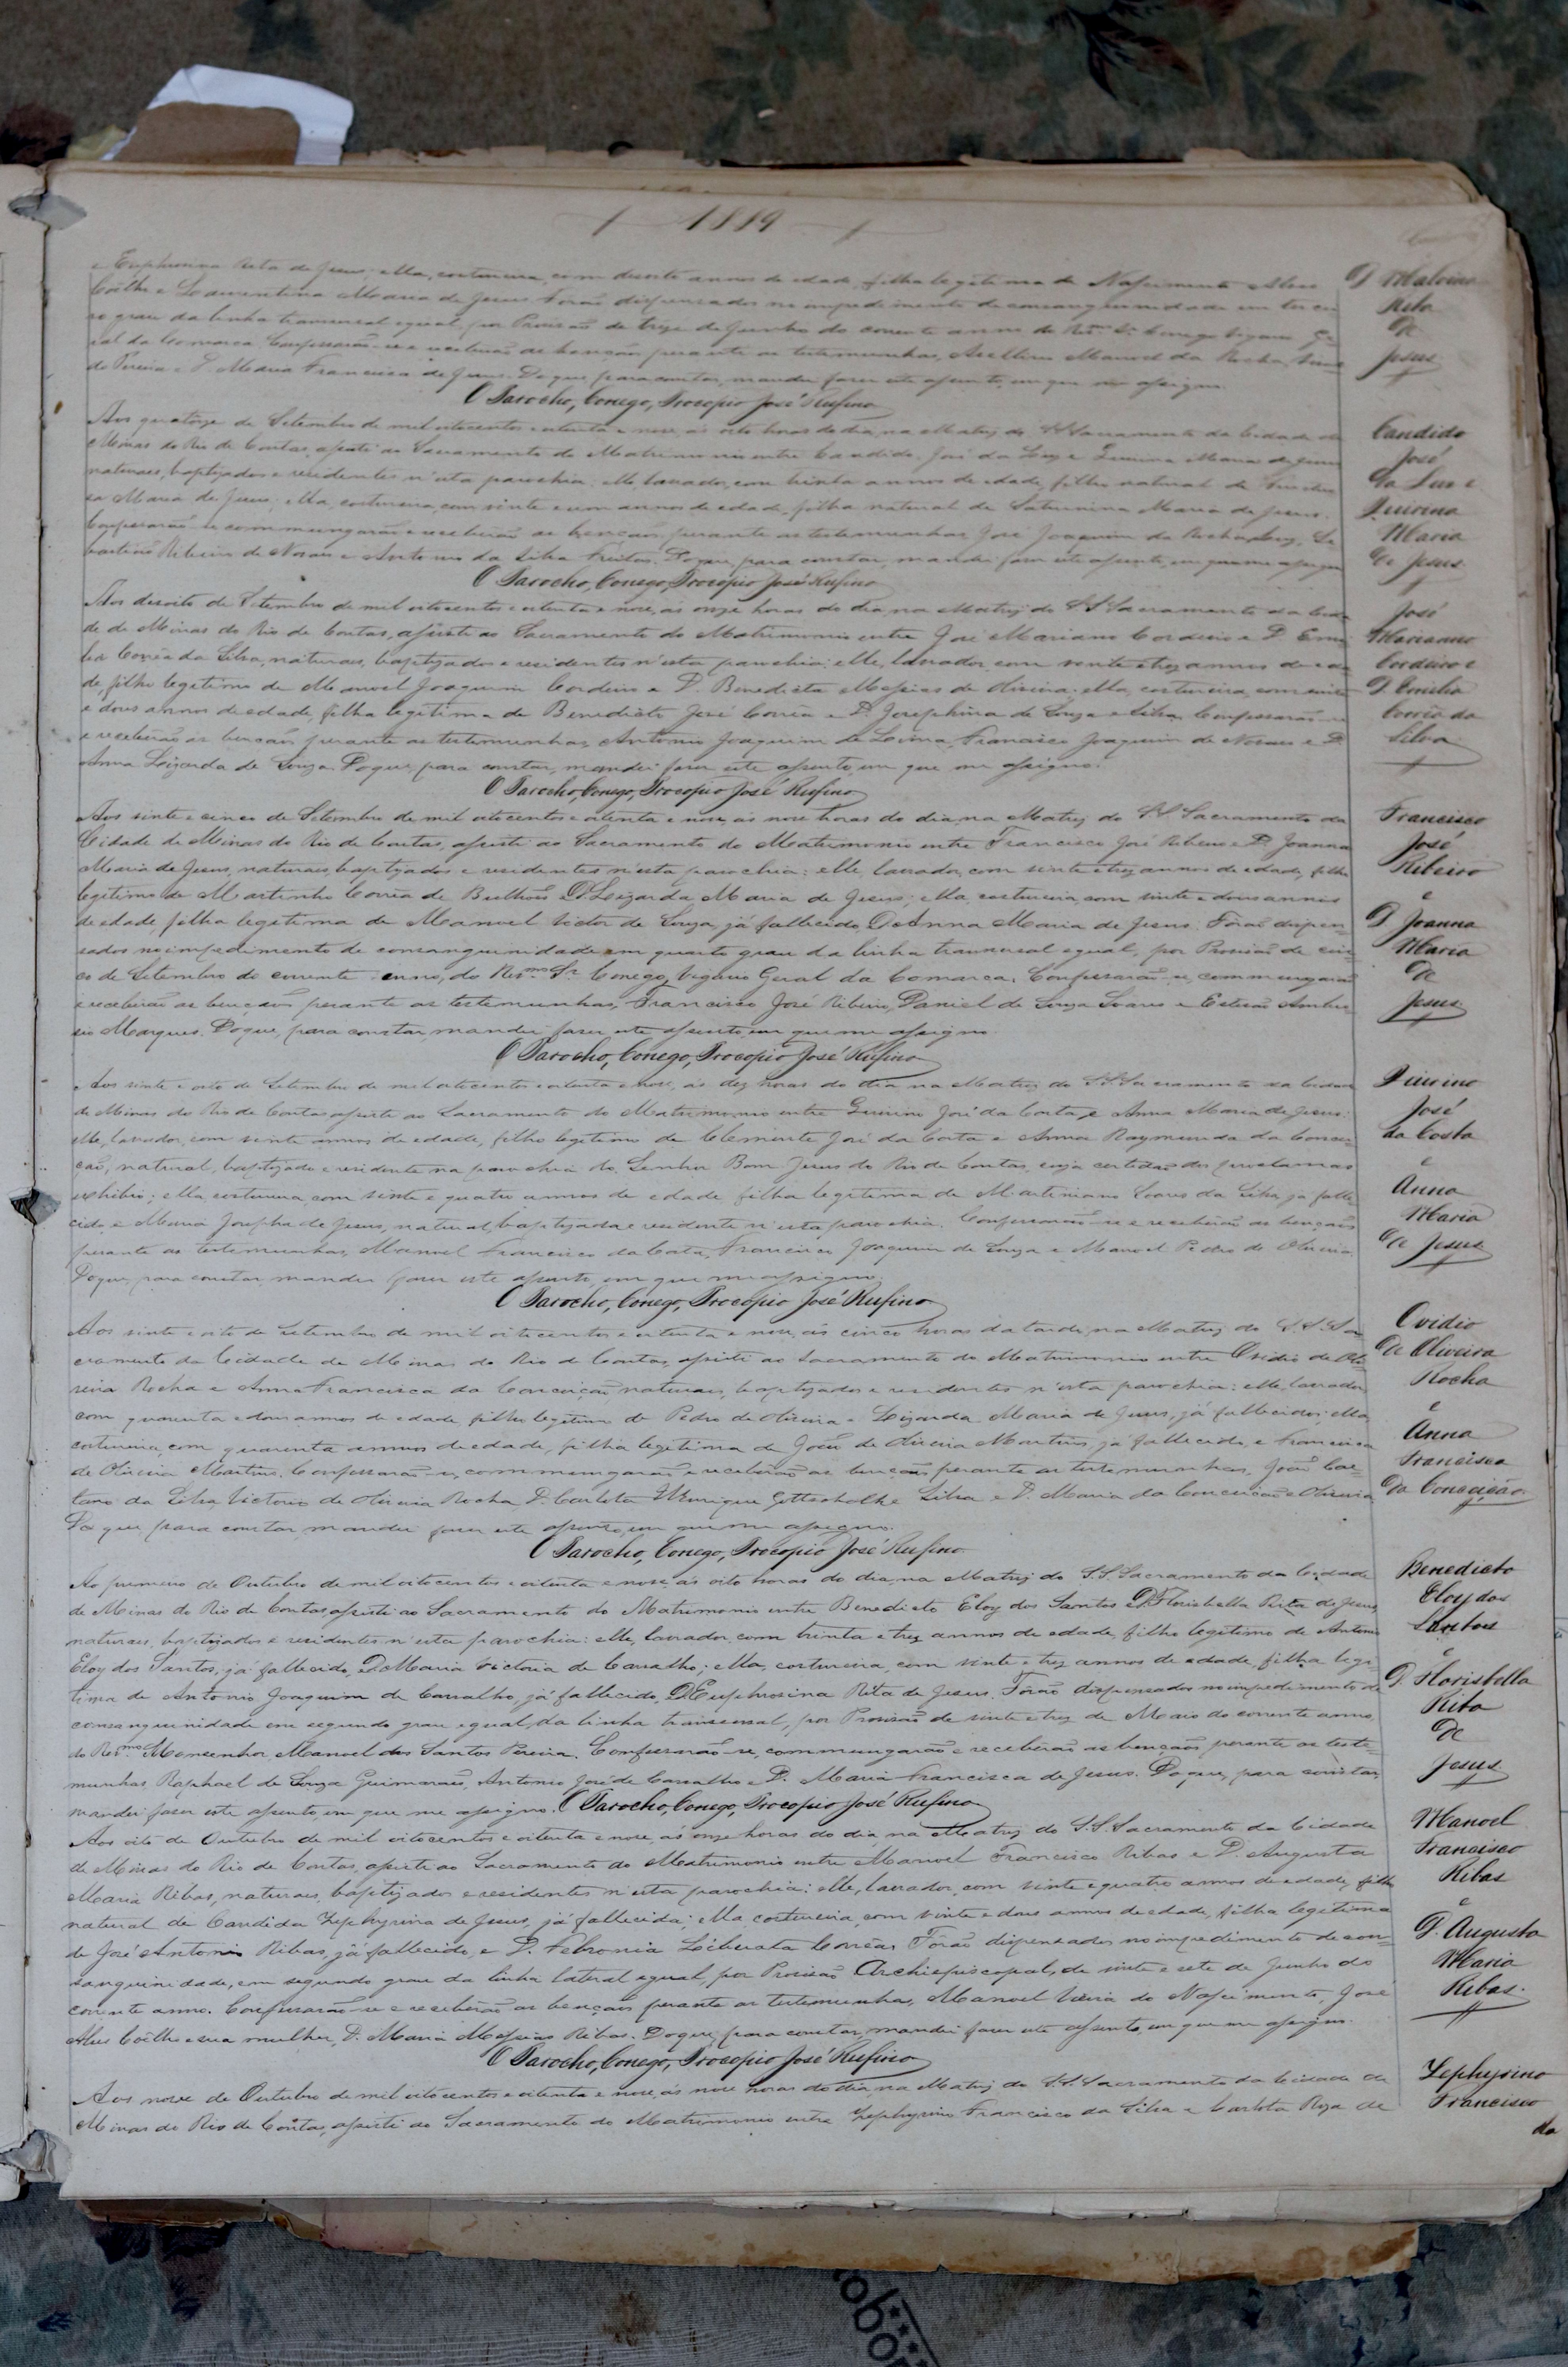 1889
e Euphrosina Rita de Jesus; ella, costureira, com desoito annos de edade, filha legitima de Nascimento Alves
Coêlho e Laurentina Maria de Jesus. Forão dispensados no impedimento de consanguinidade em tercei
ro grau da linha transversal egual, por Provisão de treze de Junho do corrente anno do Revmo Sr. Conego Vigario Ge
ral da Comarca. Confessarão-se e receberão as bençãos perante as testemunhas, Avellino Manoel da Rocha,
de Pereira e D. Maria Francisca de Jesus. Do que, para constar, mandei fazer este assento, em que me assigno.
O Parocho, Conego, Procopio José Rufino
D. Malvina
Rita
de
Jesus
Aos quatorze de Setembro de mil oitocentos e oitenta e nove, ás oito horas do dia, na Matriz do S.S. Sacramento da Cidade de
Minas do Rio de Contas, assisti ao Sacramento do Matrimonio entre Candido José da Luz e Quirina Maria de Jesus
naturaes, baptizados e residentes n'esta parochia: elle, lavrador, com trinta annos de edade, filho natural de
sa Maria de Jesus; ella, costureira, com vinte e um annos de edade, filha natural de Saturnina Maria de Jesus.
Confessarão-se, commungarão e receberão as bençãos, perante as testemunhas José Joaquim da Rocha, Se
bastião Ribeiro de Novaes e Antonio da Silva Freitas. Do que, para constar, mandei fazer este assento, em que me assigno
O Parocho, Conego, Procopio José Rufino
Candido
José
da Luz e
Quirina
Maria
de Jesus
Aos desoito de Setembro de mil oitocentos e oitenta e nove, ás onze horas do dia, na Matriz do S.S. Sacramento da Cida
de de Minas do Rio de Contas, assisti ao Sacramento do Matrimonio entre José Mariano Cordeiro e D. Emi
lia Corrêa da Silva, naturaes, baptizados e residentes n'esta parochia: elle, lavrador, com vinte e trez annos de eda
de, filho legitimo de Manoel Joaquim Cordeiro e D. Benedicta Messias de Oliveira; ella, costureira, com vinte
e dous annos de edade, filha legitima de Benedicto José Corrêa e D. Josephina de Souza e Silva. Confessarão-se
e receberão as bençãos, perante as testemunhas, Antonio Joaquim de Lima, Francisco Joaquim de Novaes e D.
Anna Lizarda de Souza. Do que, para constar, mandei fazer este assento, em que me assigno.
O Parocho, Conego, Procopio José Rufino
José
Marianno
Cordeiro e
D. Emilia
Corrêa da
Silva
Aos vinte e cinco de Setembro de mil oitocentos e oitenta e nove, ás nove horas do dia, na Matriz do S.S. Sacramento da
Cidade de Minas do Rio de Contas, assisti ao Sacramento do Matrimonio entre Francisco José Ribeiro e D. Joanna
Maria de Jesus, naturaes, baptizados e residentes n'esta parochia: elle, lavrador, com vinte e trez annos de edade, filho
legitimo de Martinho Corrêa de Bulhões e D. Lizarda Maria de Jesus; ella, costureira, com vinte e dous annos
de edade, filha legitima de Manoel Victor de Souza, já fallecido, e D. Anna Maria de Jesus. Fôrão dispen
sados no impedimento de consanguinidade em quarto grau da linha transversal egual, por Provisão de cin
co de Setembro do corrente anno, do Revmo Sr. Conego, Vigario Geral da Comarca. Confessarão-se, commungarão
e receberão as bençãos perante as testemunhas, Francisco José Ribeiro, Daniel de Souza Soares e Estevão Ambro
sio Marques. Do que, para constar, mandei fazer este assento, em que me assigno
O Parocho, Conego, Procopio José Rufino
Francisco
José
Ribeiro
e
D. Joanna
Maria
de
Jesus
Aos vinte e oito de Setembro de mil oitocentos e oitenta e nove, ás dez horas do dia na Matriz do S.S. Sacramento da Cidade
de Minas do Rio de Contas assisti ao Sacramento do Matrimonio entre Quirino José da Costa e Anna Maria de Jesus:
elle, lavrador, com vinte annos de edade, filho legitimo de Clemente José da Costa e Anna Raymunda da Concei
ção, natural, baptizado e residente na parochia do Senhor Bom Jesus do Rio de Contas, cuja certidão dos proclamas
exhibiu; ella, costureira, com vinte e quatro annos de edade filha legitima de Martiniano Soares da Silva, já falle
cido e Maria Josepha de Jesus, natural, baptizada e residente n'esta parochia. Confessarão-se e receberão as bençãos
perante as testemunhas, Manoel Francisco da Costa, Francisco Joaquim de Souza e Manoel Pedro de Oliveira.
Do que, para constar, mandei fazer este assento, em que me assigno.
O Parocho, Conego, Procopio José Rufino
Quirino
José
da Costa
e
Anna
Maria
de Jesus
Aos vinte e oito de Setembro de mil oitocentos e oitenta e nove, ás cinco horas da tarde, na Matriz do S.S. Sa
cramento da Cidade de Minas do Rio de Contas, assisti ao Sacramento do Matrimonio entre Ovidio de Oli
veira Rocha e Anna Francisca da Conceição, naturaes, baptizados e residentes n'esta parochia: elle, lavrador,
com quarenta e dous annos de edade, filho legitimo de Pedro de Oliveira e Lizarda Maria de Jesus, já fallecidos; ella,
costureira, com quarenta annos de edade, filha legitima de João de Oliveira Martins, já fallecido, e Francisca
de Oliveira Martins. Confessarão-se, commungarão e receberão as bençãos, perante as testemunhas, João Cae-
tano da Silva, Victorio de Oliveira Rocha, D. Carlota Henrique Gottschalke Silva e D. Maria da Conceição e Oliveira
Do que, para constar, mandei fazer este assento, em que me assigno.
O Parocho, Conego, Procopio José Rufino
Ovidio
de Oliveira
Rocha
e
Anna
Francisca
da Conceição
Ao primeiro de Outubro de mil oitocentos e oitenta e nove, ás oito horas do dia, na Matriz do S.S. Sacramento da Cidade
de Minas do Rio de Contas, assisti ao Sacramento do Matrimonio entre Benedicto Eloy dos Santos e D. Floristella Rita de Jesus,
naturaes, baptizados e residentes n'esta parochia: elle, lavrador, com trinta e trez annos de edade, filho legitimo de Antonio
Eloy dos Santos, já fallecido, e D. Maria Victoria de Carvalho; ella, costureira, com vinte e trez annos de edade, filha legi-
tima de Antonio Joaquim de Carvalho, já fallecido, e D. Euphrosina Rita de Jesus. Fôrão dispensados no impedimento de
consanguinidade em segundo grau egual, da linha transversal, por Provisão de vinte e trez de Maio do corrente anno,
do Revmo Monsenhor Manoel dos Santos Pereira. Confessarão-se, commungarão e receberão as bençãos, perante as teste-
munhas, Raphael de Souza Guimarães, Antonio José de Carvalho e D. Maria Francisca de Jesus. Do que, para constar,
mandei fazer este assento, em que me assigno. O Parocho, Conego, Procopio José Rufino
Benedicto
Eloy dos
Santos
e
D. Floristella
Rita
de
Jesus
Aos oito de Outubro de mil oitocentos e oitenta e nove, ás onze horas do dia, na Matriz do S.S. Sacramento da Cidade
de Minas do Rio de Contas, assisti ao Sacramento do Matrimonio entre Manoel Francisco Ribas e D. Augusta
Maria Ribas, naturaes, baptizados e residentes n'esta parochia: elle, lavrador, com vinte e quatro annos de edade, filho
natural de Candida Zephyrina de Jesus, já fallecida; ella, costureira, com vinte e dous annos de edade, filha legitima
de José Antonio Ribas, já fallecido, e D. Febronia Liberata Corrêa. Fôrão dispensados no impedimento de con-
sanguinidade, em segundo grau da linha lateral egual, por Provisão Archiepiscopal, de vinte e sete de Junho do
corrente anno. Confessarão-se e receberão as bençãos perante as testemunhas, Manoel Vieira do Nascimento, José
Alves Coêlho e sua mulher, D. Maria Messias Ribas. Do que, para constar, mandei fazer este assento, em que me assigno.
O Parocho, Conego, Procopio José Rufino
Manoel
Francisco
Ribas
e
D. Augusta
Maria
Ribas.
Aos nove de Outubro de mil oitocentos e oitenta e nove, ás nove horas do dia, na Matriz do S.S. Sacramento da Cidade de
Minas do Rio de Contas, assisti ao Sacramento do Matrimonio entre Zephyrino Francisco da Silva e Carlota Roza de
Zephyrino
Francisco
da